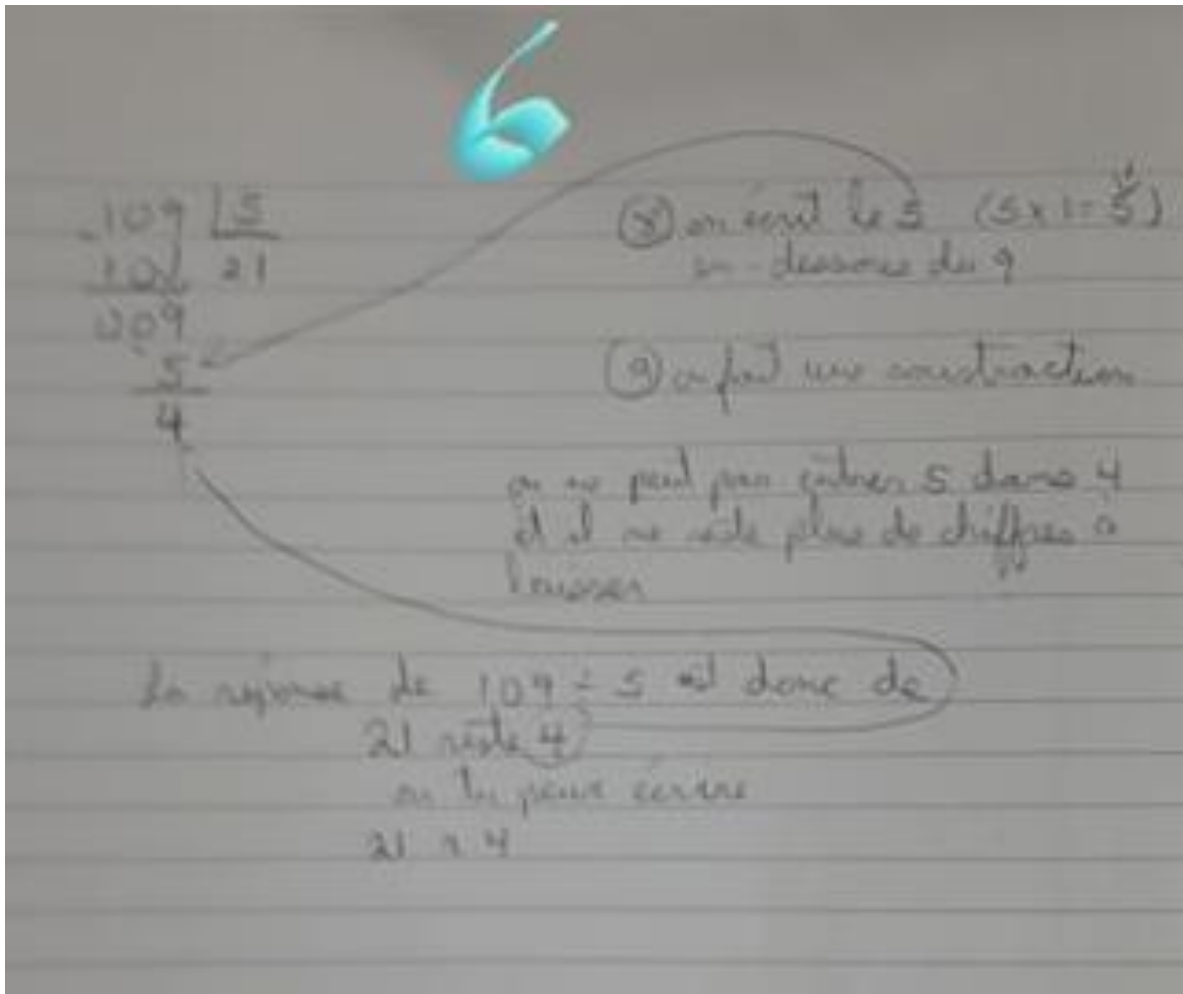 6
109 5
10 21
009
5
4
⑧ on écrit le 5 (5 x 1 = 5)
en-dessous du 9
⑨ on fait une soustraction
on ne peut pas entrer 5 dans 4
et il ne reste plus de chiffres à
baisser
La réponse de 109 ÷ 5 est donc de
21 reste 4
ou tu peux écrire
21 r 4